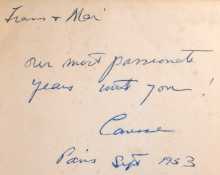 our most passionate
years with you !
Caresse
Paris Sept 1953